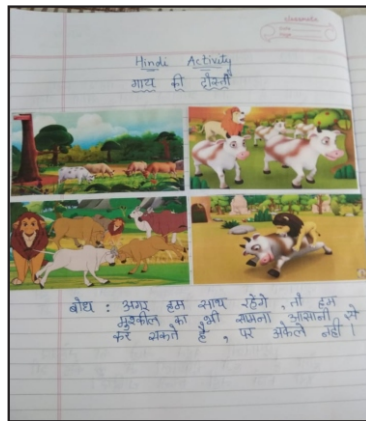 classmate
Date
Page
Hindi Activity
गाय की दोस्ती
बोध : अगर हम साथ रहेंगे , तो हम
मुश्कील का भी सामना आसानी से
कर सकते है , पर अकेले नही ।